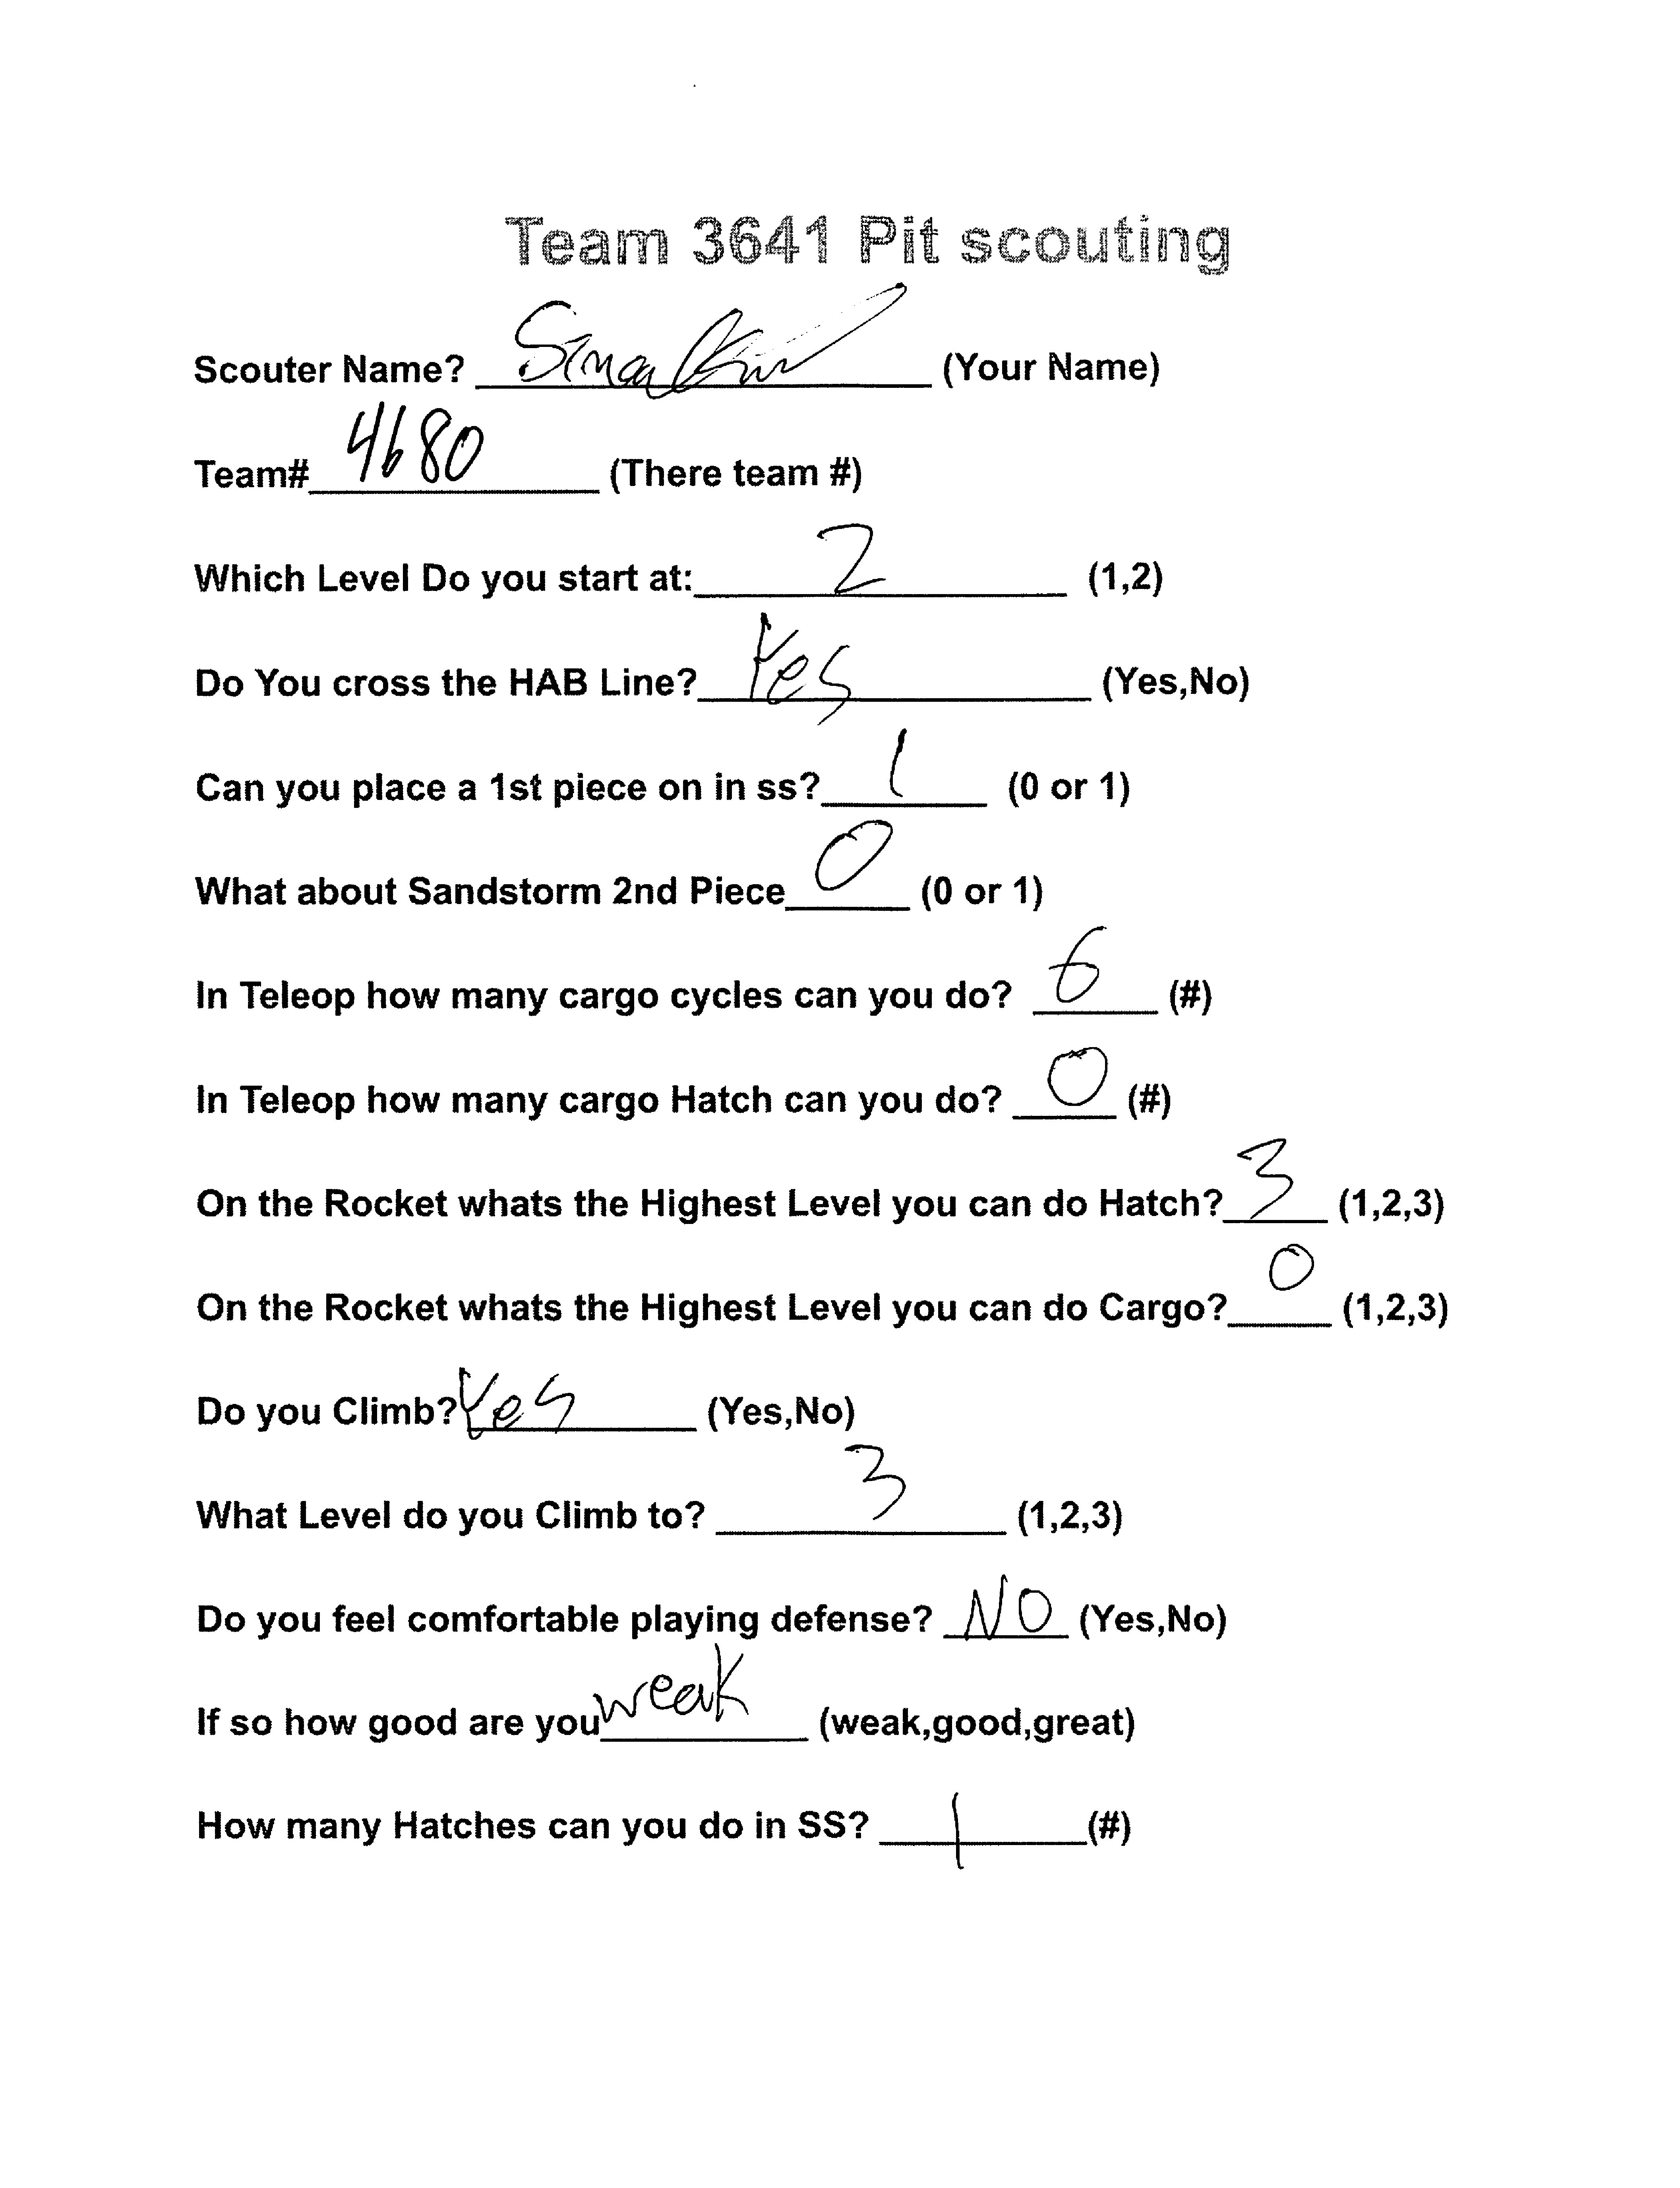 Team 3641 Pit scouting
Scouter Name? (Your Name)
Team# 4680 (There team #)
Which Level Do you start at: 2 (1,2)
Do You cross the HAB Line? Yes (Yes,No)
Can you place a 1st piece on in ss? 1 (0 or 1)
What about Sandstorm 2nd Piece 0 (0 or 1)
In Teleop how many cargo cycles can you do? 6 (#)
In Teleop how many cargo Hatch can you do? 0 (#)
On the Rocket whats the Highest Level you can do Hatch? 3 (1,2,3)
On the Rocket whats the Highest Level you can do Cargo? 0 (1,2,3)
Do you Climb? Yes (Yes,No)
What Level do you Climb to? 3 (1,2,3)
Do you feel comfortable playing defense? NO (Yes,No)
If so how good are you weak (weak,good,great)
How many Hatches can you do in SS? 1 (#)